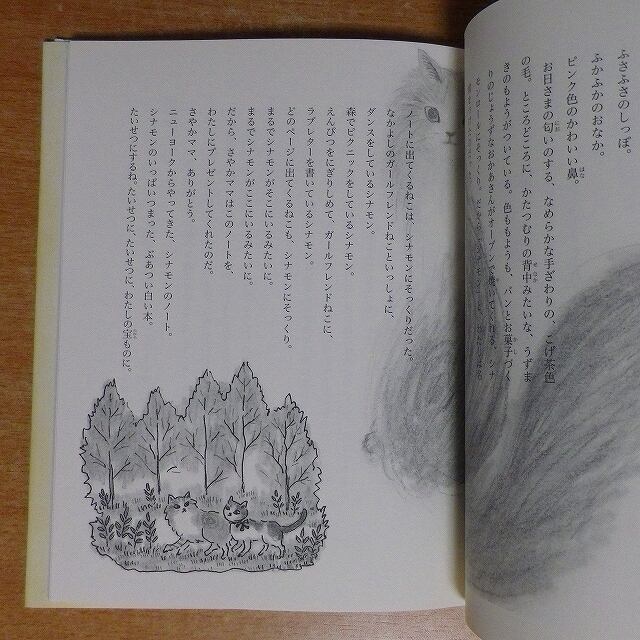 ふさふさのしっぽ。
ふかふかのおなか。
ピンク色のかわいい鼻。
お日さまの匂いのする、なめらかな手ざわりの、こげ茶色
の毛。ところどころに、かたつむりの背中みたいな、うずま
きのもようがついている。色ももようも、パンとお菓子づく
りのじょうずなおかあさんがオーブンで焼いてくれる、シナ
モンロールにそっくり。だから
ノートに出てくるねこは、シナモンにそっくりだった。
なかよしのガールフレンドねこといっしょに、
ダンスをしているシナモン。
森でピクニックをしているシナモン。
えんぴつをにぎりしめて、ガールフレンドねこに、
ラブレターを書いているシナモン。
どのページに出てくるねこも、シナモンにそっくり。
まるでシナモンがそこにいるみたいに。
まるでシナモンがここにいるみたいに。
だから、さやかママはこのノートを、
わたしにプレゼントしてくれたのだ。
さやかママ、ありがとう。
ニューヨークからやってきた、シナモンのノート。
シナモンのいっぱいつまった、ぶあつい白い本。
たいせつにするね。たいせつに、たいせつに、わたしの宝ものに。